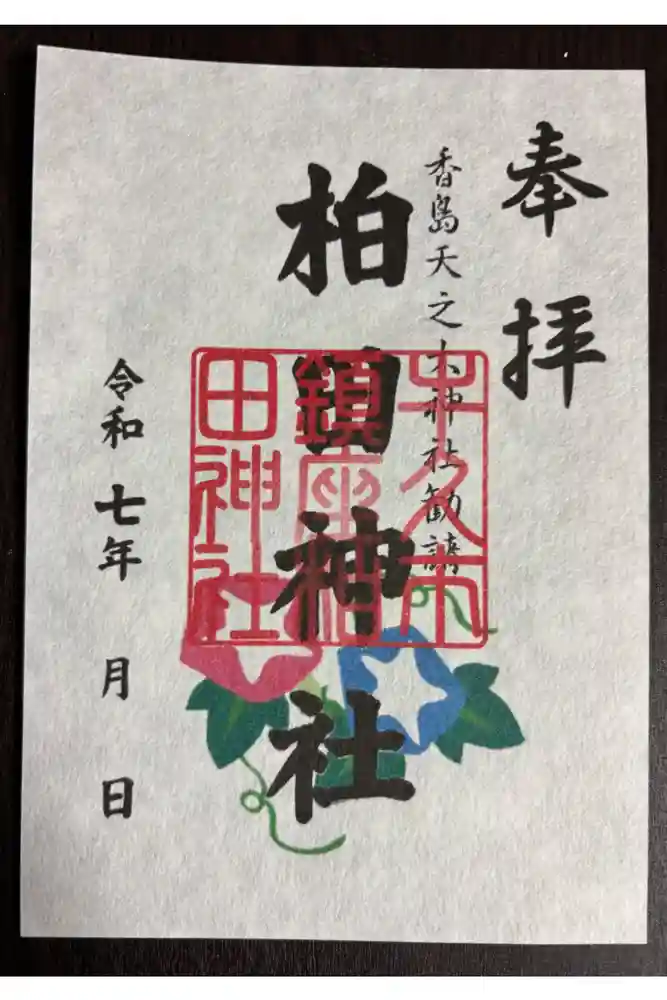 奉拝
香島天之大神社勧請
柏田神社
牛久市
鎮座柏
田神社
令和七年 月 日